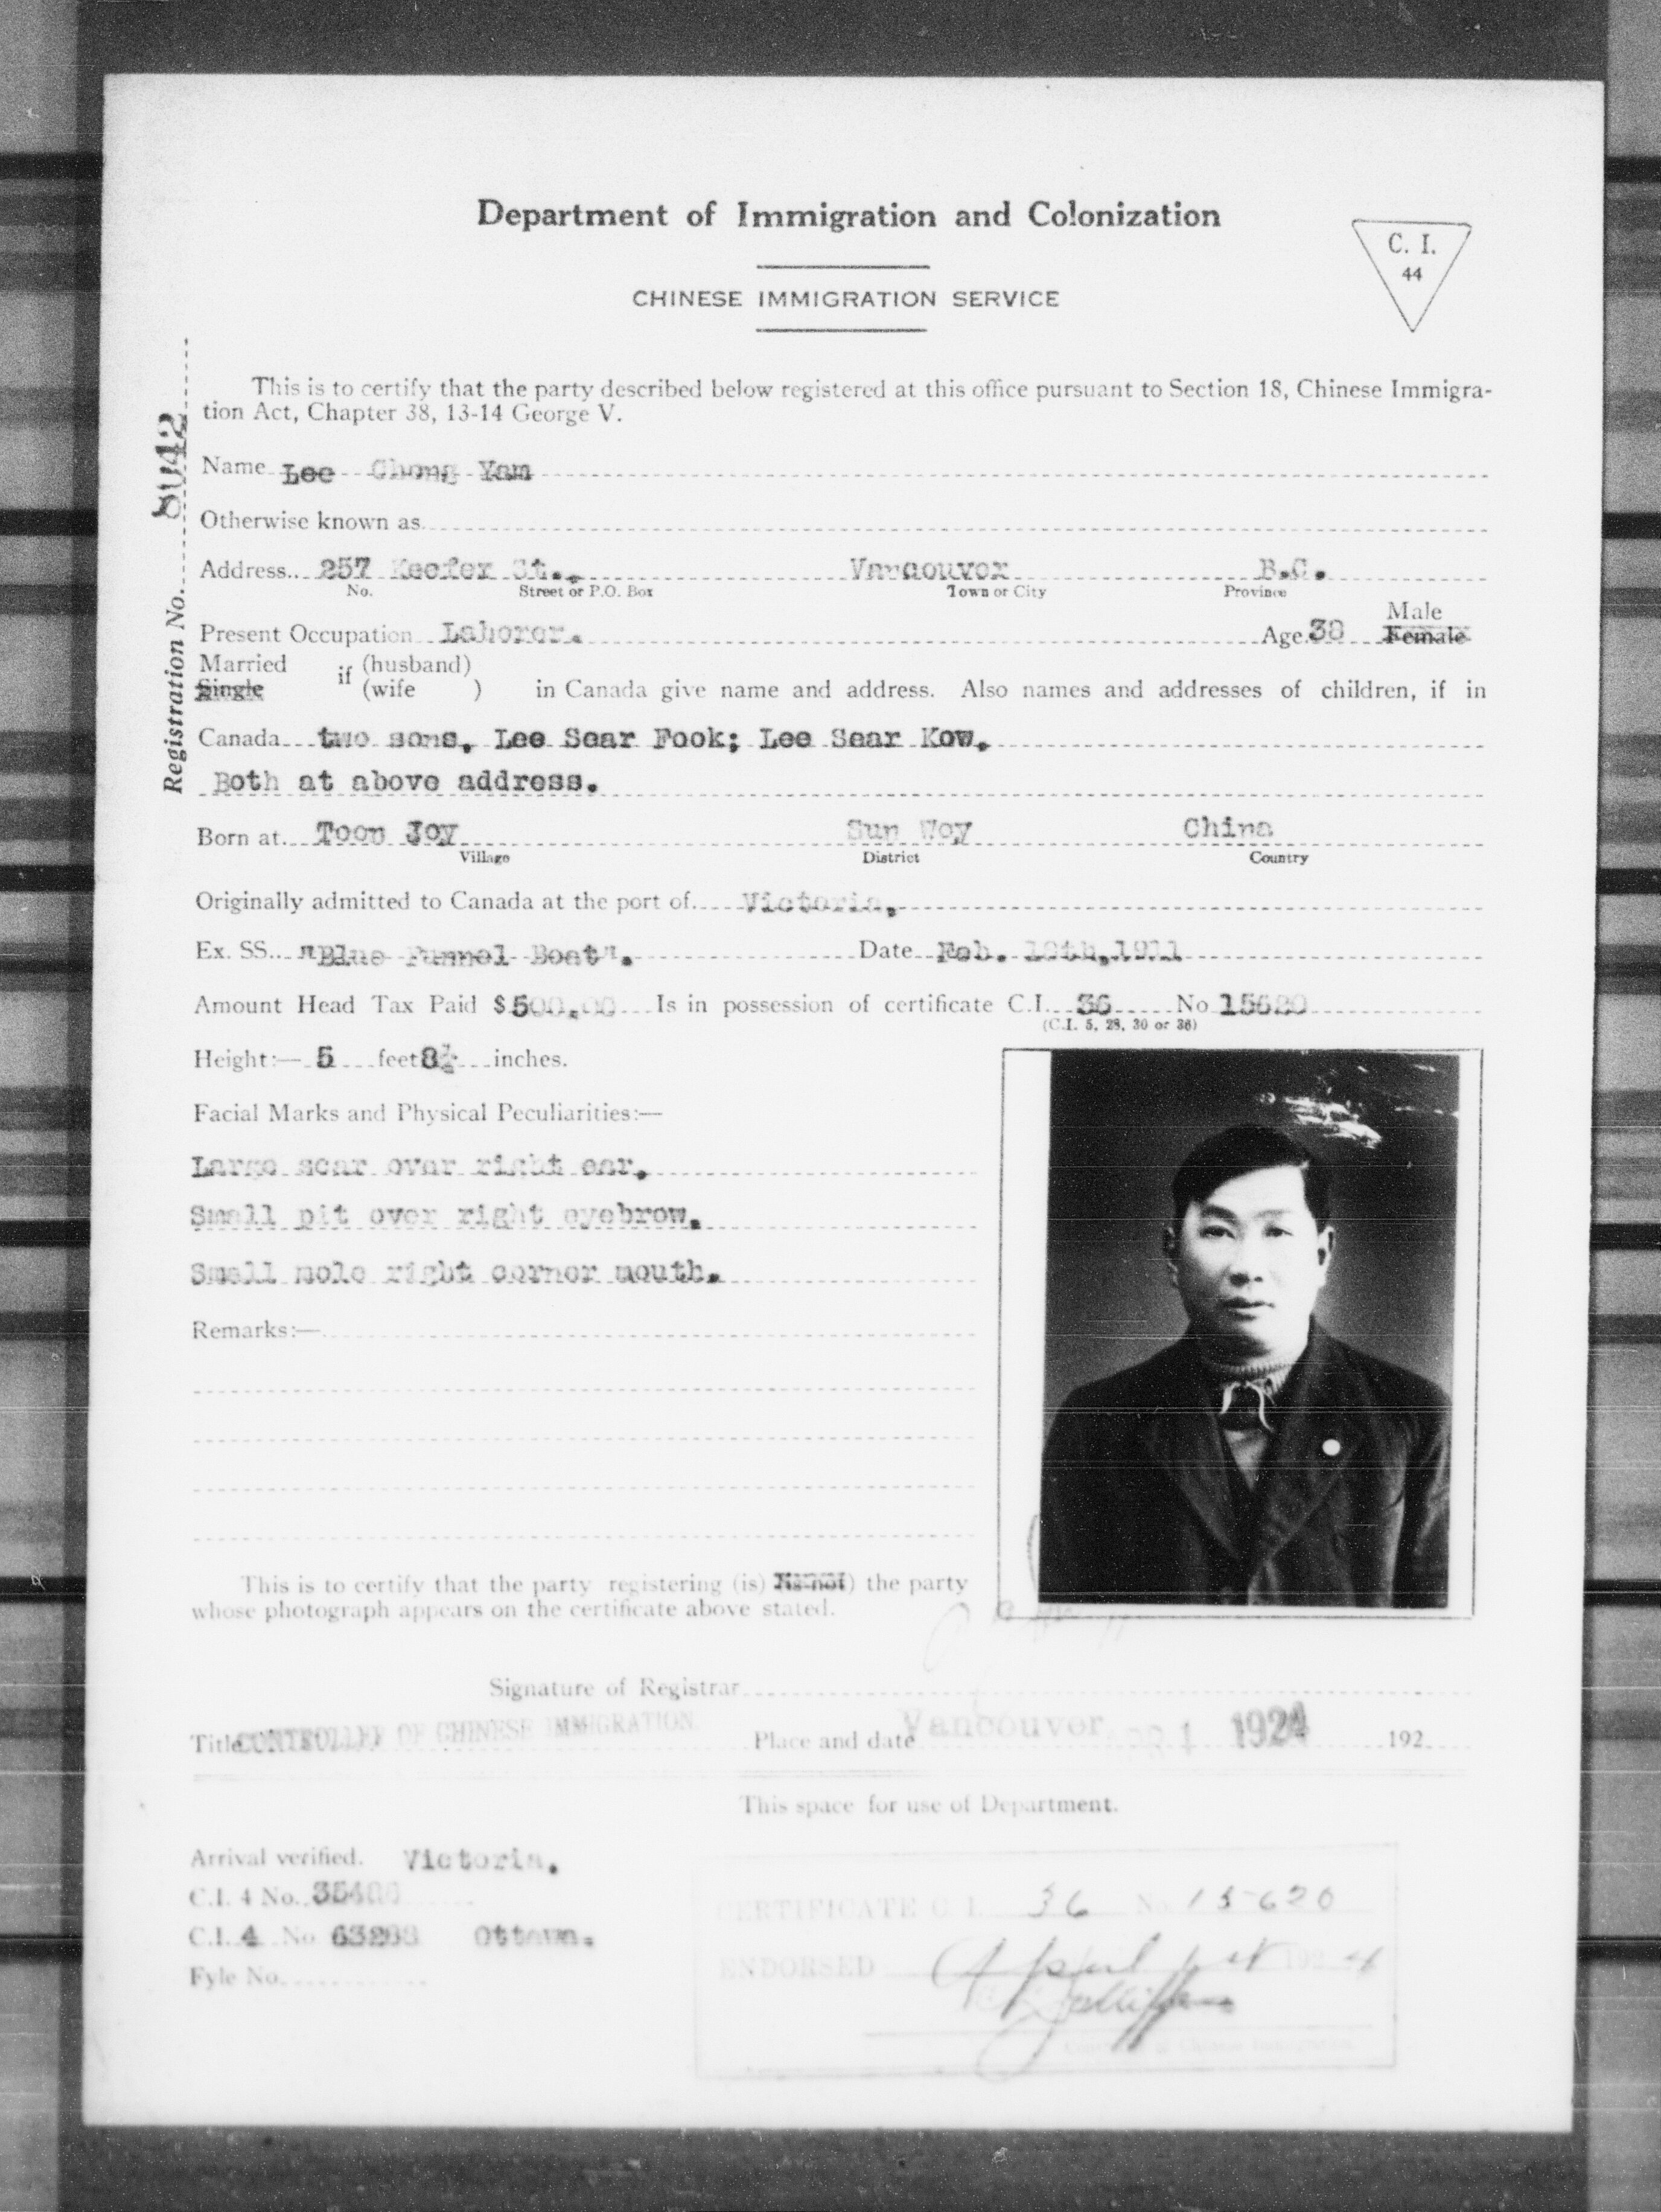 Department of Immigration and Colonization
C. I.
44
CHINESE IMMIGRATION SERVICE
This is to certify that the party described below registered at this office pursuant to Section 18, Chinese Immigra-
tion Act, Chapter 38, 13-14 George V.
Registration No. 8042
Name Lee Chong Yam
Otherwise known as
Address 257 Keefer St., Vancouver B.C.
No. Street or P.O. Box Town or City Province
Male
Present Occupation Laborer. Age Female
Married if (husband)
Single (wife ) in Canada give name and address. Also names and addresses of children, if in
Canada two sons, Lee Sear Fook; Lee Sear Kow.
Both at above address.
Born at Toon Joy Sun Woy China
Village District Country
Originally admitted to Canada at the port of Victoria.
Ex. SS. "Blue Funnel Boat". Date Feb. 1911
Amount Head Tax Paid $500.00 Is in possession of certificate C.I. 36 No 15620
(C.I. 5, 28, 30 or 36)
Height:— 5 feet 8½ inches.
Facial Marks and Physical Peculiarities:—
Large scar over right ear.
Small pit over right eyebrow.
Small mole right corner mouth.
Remarks:—
This is to certify that the party registering (is) is not) the party
whose photograph appears on the certificate above stated.
Signature of Registrar
Title CONTROLLER OF CHINESE IMMIGRATION Place and date Vancouver APR 1 1924 192
This space for use of Department.
Arrival verified. Victoria.
C.I. 4 No.
C.I. 4 No Ottawa.
Fyle No.
CERTIFICATE C. I. 36 No. 15620
ENDORSED April 1st 1924